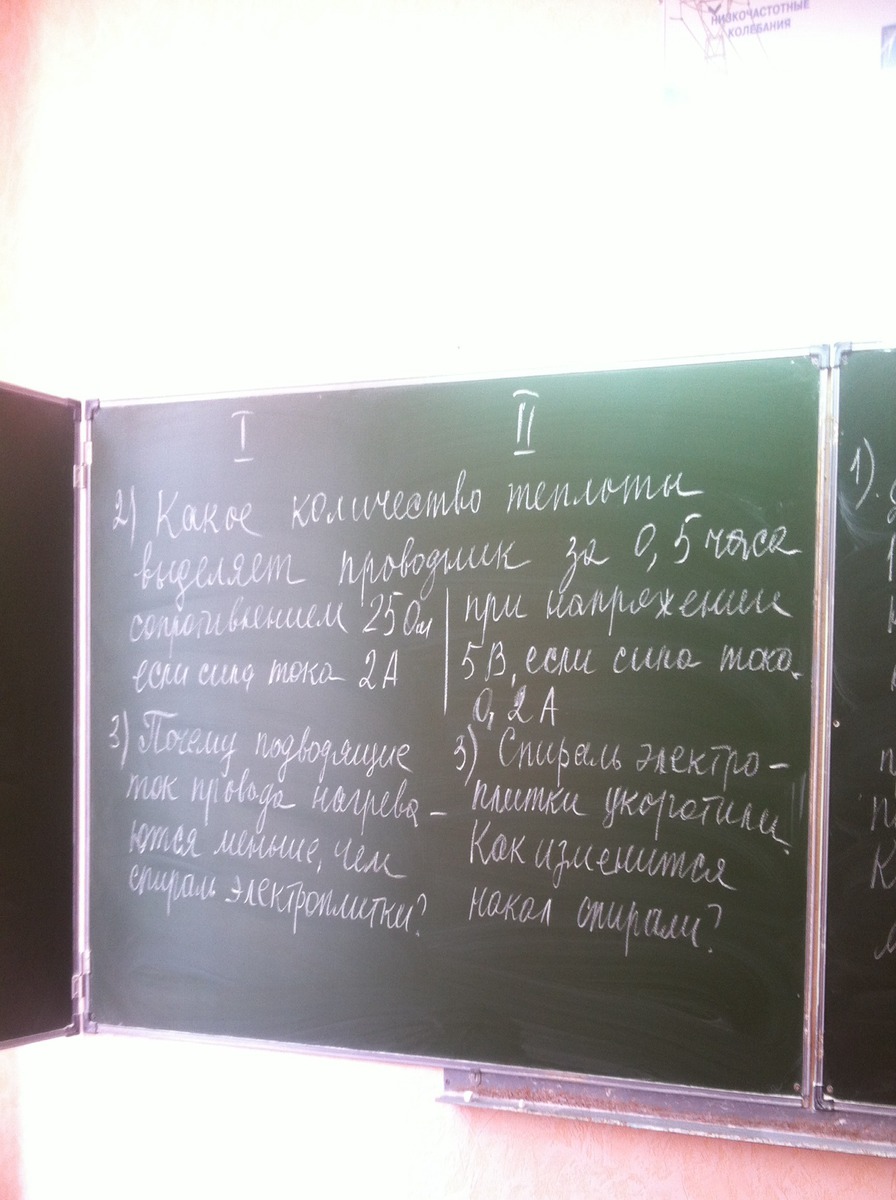 НИЗКОЧАСТОТНЫЕ
КОЛЕБАНИЯ
I
II
2) Какое количество теплоты
выделяет проводник за 0,5 часа
сопротивлением 25 Ом
если сила тока 2А
при напряжении
5В, если сила тока
0,2А
3) Почему подводящие
ток провода нагрева-
ются меньше, чем
спираль электроплитки?
3) Спираль электро-
плитки укоротили.
Как изменится
накал спирали?
1).